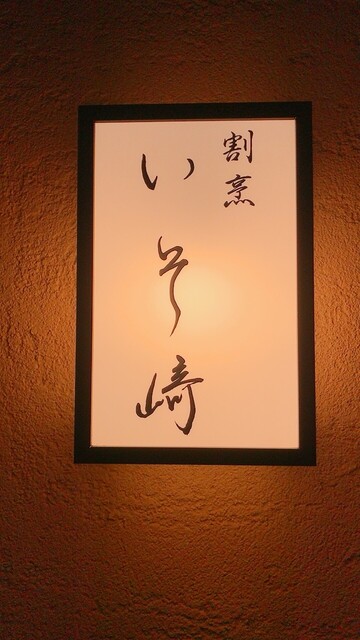 割烹
いそ崎